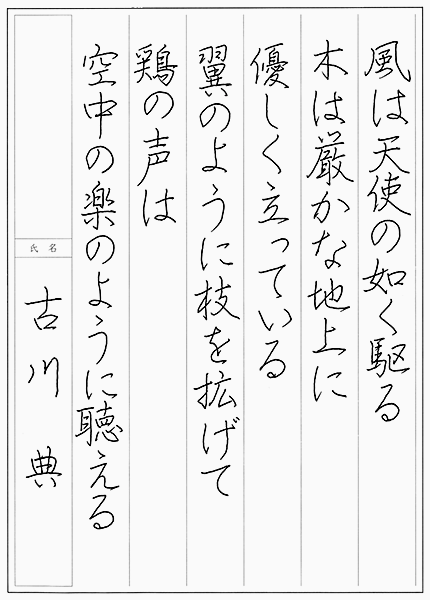 風は天使の如く駆る
木は厳かな地上に
優しく立っている
翼のように枝を拡げて
鶏の声は
空中の楽のように聴える
氏名
古川典